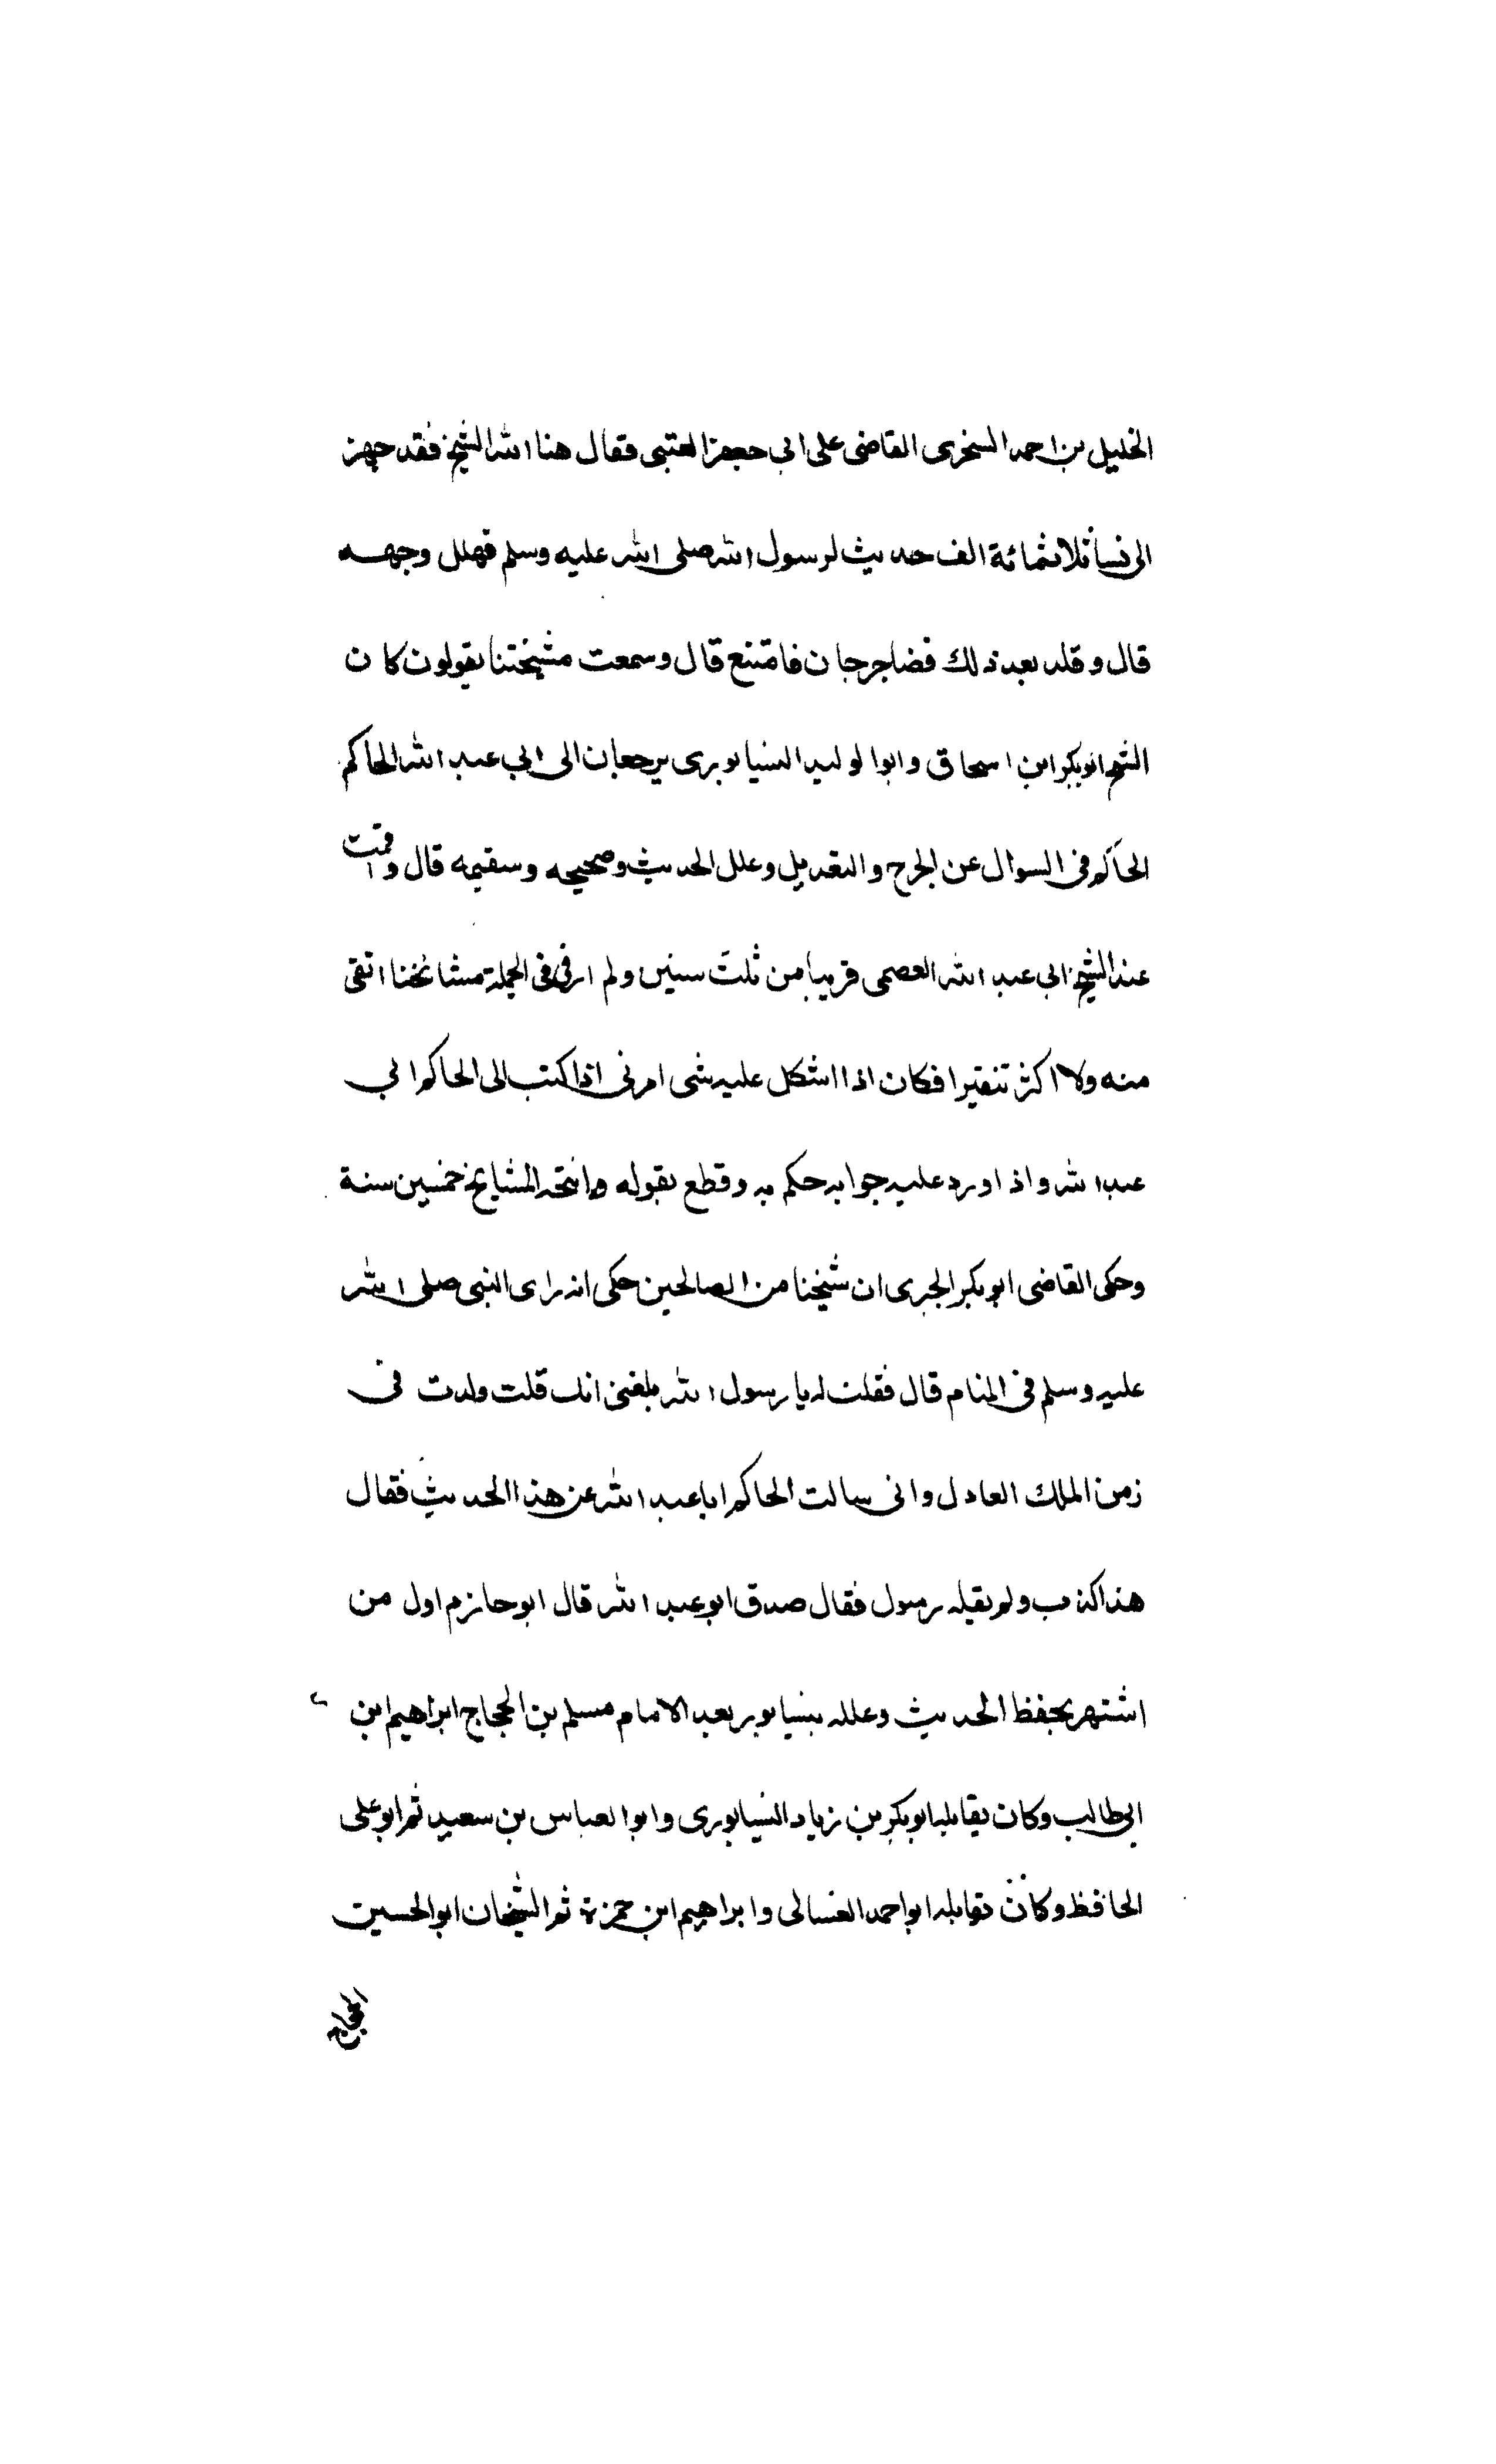 الخليل بن احمد السنجرى القاضى على ابى جعفر العتبى فقال هنا الله الشيخ فقد جهز
الى نسا ثلاثمائة الف حديث لرسول الله صلى الله عليه وسلم فهلل وجهه
قال وقلد بعد ذلك قضا جرجان فامتنع قال وسمعت مشيختنا يقولون كان
الشيخ ابوبكر ابن اسحاق وابوا لوليد النسيابورى يرجعان الى ابى عبد الله الحاكم
الحاكم فى السوال عن الجرح والتعديل وعلل الحديث وصحيحه وسقيمه قال واقمت
عند الشيخ ابى عبد الله العصمى قريبا من ثلث سنين ولم ار فى فى الجملة مشائخنا اتقى
منه ولا اكثر تنقيرا فكان اذا اشكل عليه شى امرنى اذا كتب الى الحاكم ابى
عبد الله واذا ورد عليه جوابه حكم به وقطع بقوله المشايخ خمسين سنة
وحكى القاضى ابوبكر الجبرى ان شيخنا من الصالحين حكى انه راى النبى صلى الله
عليه وسلم فى المنام قال فقلت له يا رسول الله بلغنى انك قلت ولدت فى
زمن الملك العادل وانى سالت الحاكم ابا عبد الله عن هذا الحديث فقال
هذا كذب ولم يقله رسول فقال صدق ابو عبد الله قال ابو حازم اول من
اشتهر بحفظ الحديث وعلله بنسيابور بعد الامام مسلم بن الحجاج ابراهيم ابن
ابى طالب وكان يقابله ابوبكر بن زياد النسيابورى وابوا لعباس بن سعيد ثم ابو على
الحافظ وكان يقابله ابو احمد العسالى وابراهيم ابن حمزة ثم الشيخان ابو الحسين